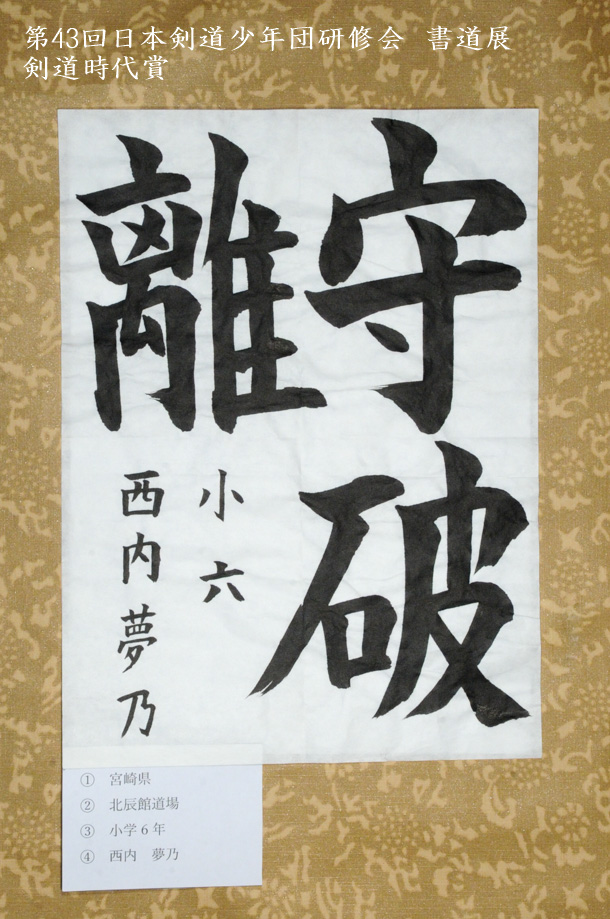 第43回日本剣道少年団研修会 書道展
剣道時代賞
守破
離
小六
西内夢乃
① 宮崎県
② 北辰館道場
③ 小学6年
④ 西内 夢乃